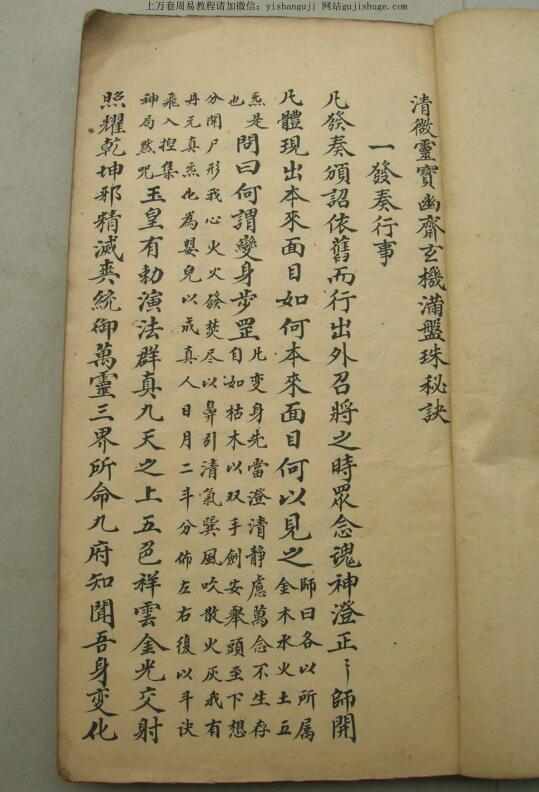 上万套周易教程请加微信：yishanguji 网站gujishuge.com
清微靈寶幽齋玄機滿盤珠秘訣
一發奏行事
凡發奏頒詔依舊而行出外召將之時眾念魂神澄正〻師開
凡體現出本來面目如何本來面目何以見之師曰各以所属金木水火土五
炁是也問曰何謂變身步罡凡变身先當澄清静慮萬念不生存自如枯木以双手劍安舉頭至下想
分開尸形我心火火發焚尽以鼻引清氣巽風吹散火灰我有
丹元真炁化為嬰兒以成真人日月二斗分佈左右復以斗诀
飛入揑集神局黙咒玉皇有勅演法群真九天之上五色祥雲金光交射
照耀乾坤邪精滅爽統御萬靈三界所命九府知聞吾身变化